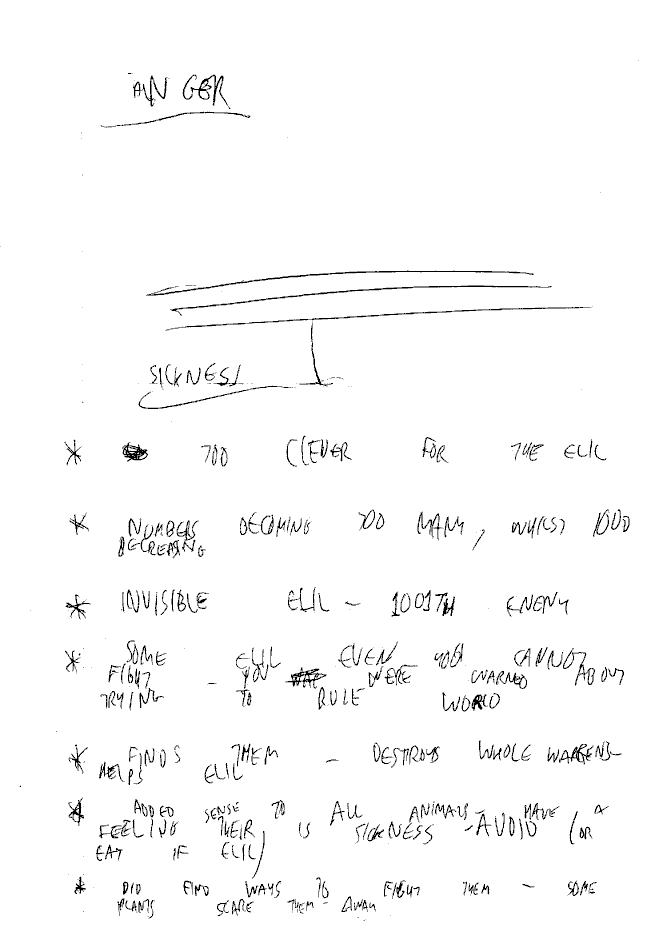 ANGER
SICKNESS
* TOO CLEVER FOR THE ELIL
* NUMBERS BECOMING TOO MANY, WHILST FOOD
DECREASING
* INVISIBLE ELIL - 1001TH ENEMY
* SOME ELIL EVEN YOU CANNOT
FIGHT - YOU WERE WARNED ABOUT
TRYING TO RULE WORLD
* FINDS THEM - DESTROYS WHOLE WARRENS -
HELPS ELIL
* ADDED SENSE TO ALL ANIMALS - HAVE A
FEELING THEIR IS SICKNESS - AVOID (OR
EAT IF ELIL)
* DID FIND WAYS TO FIGHT THEM - SOME
PLANTS SCARE THEM AWAY